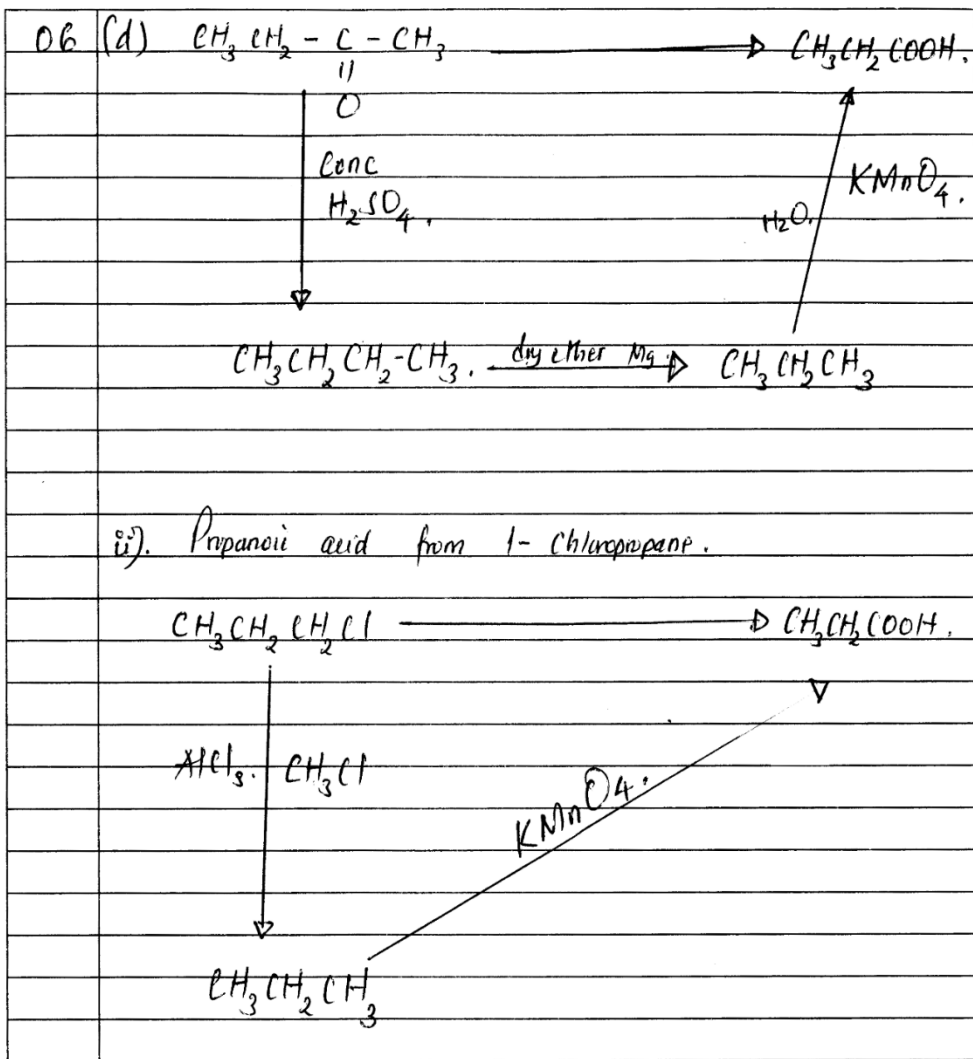 06 (d) CH3 CH2 - C - CH3 → CH3CH2COOH.
||
O
Conc
H2SO4.
KMnO4.
H2O.
CH3CH2CH2-CH3. dry ether Mg → CH3CH2CH3
ii). Propanoic acid from 1- Chloropropane.
CH3CH2CH2Cl → CH3CH2COOH.
AlCl3. CH3Cl
KMnO4.
CH3CH2CH3